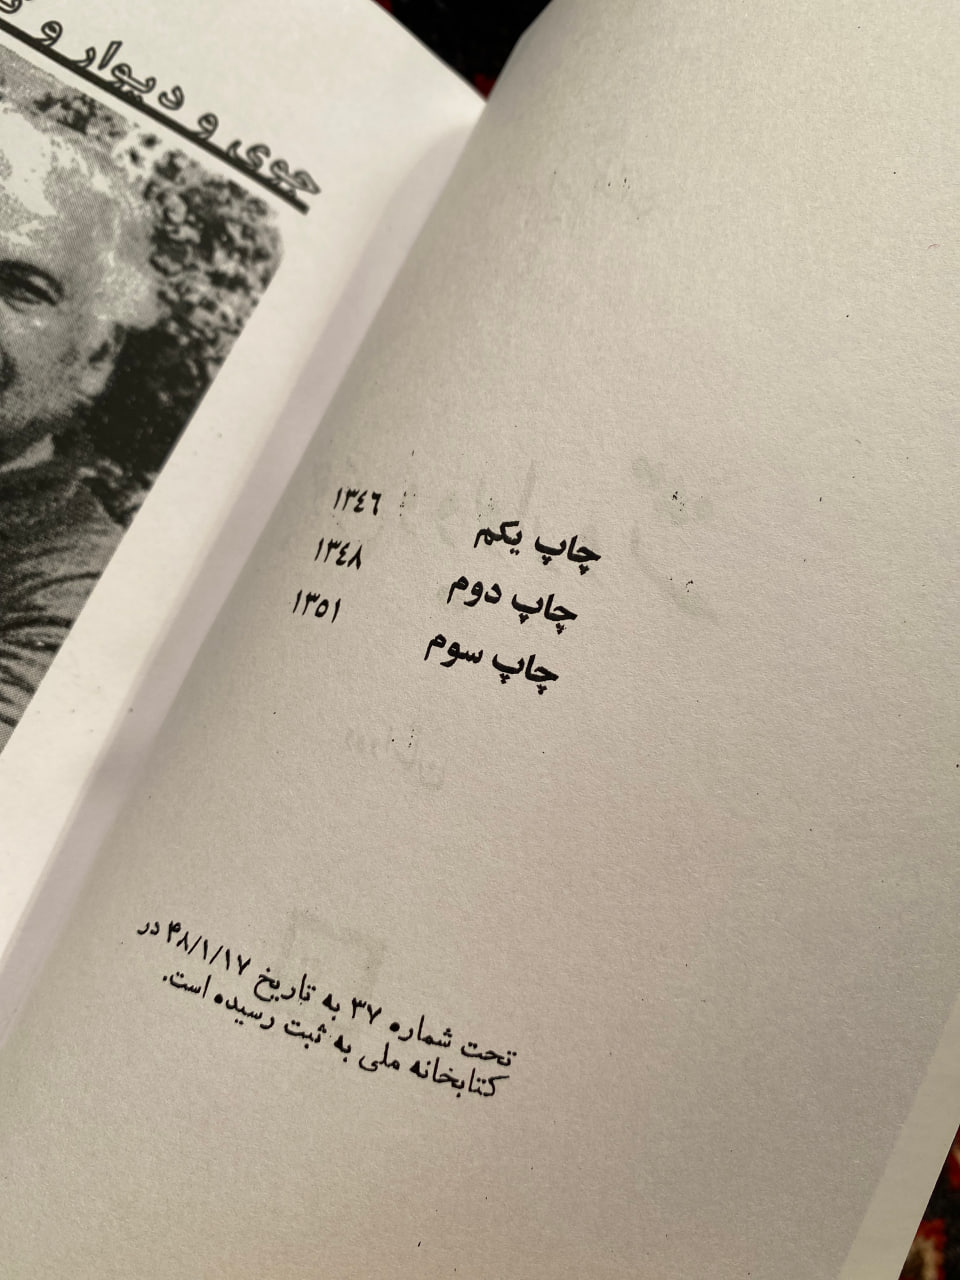 جوی و دیوار و
چاپ یکم ١٣٤٦
چاپ دوم ١٣٤٨
چاپ سوم ١٣٥١
تحت شماره ۳۷ به تاریخ ۴۸/۱/۱۷ در
کتابخانه ملی به ثبت رسیده است.